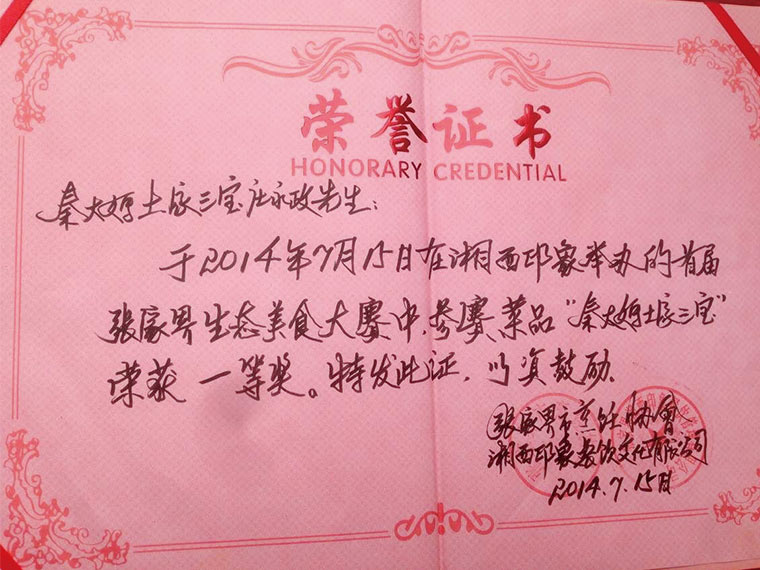 荣誉证书
HONORARY CREDENTIAL
秦大妈土家三宝庄永政先生：
于2014年7月15日在湘西印象举办的首届
张家界生态美食大赛中，参赛菜品“秦大妈土家三宝”
荣获一等奖。特发此证，以资鼓励.
张家界市烹饪协会
湘西印象餐饮文化有限公司
2014.7.15日